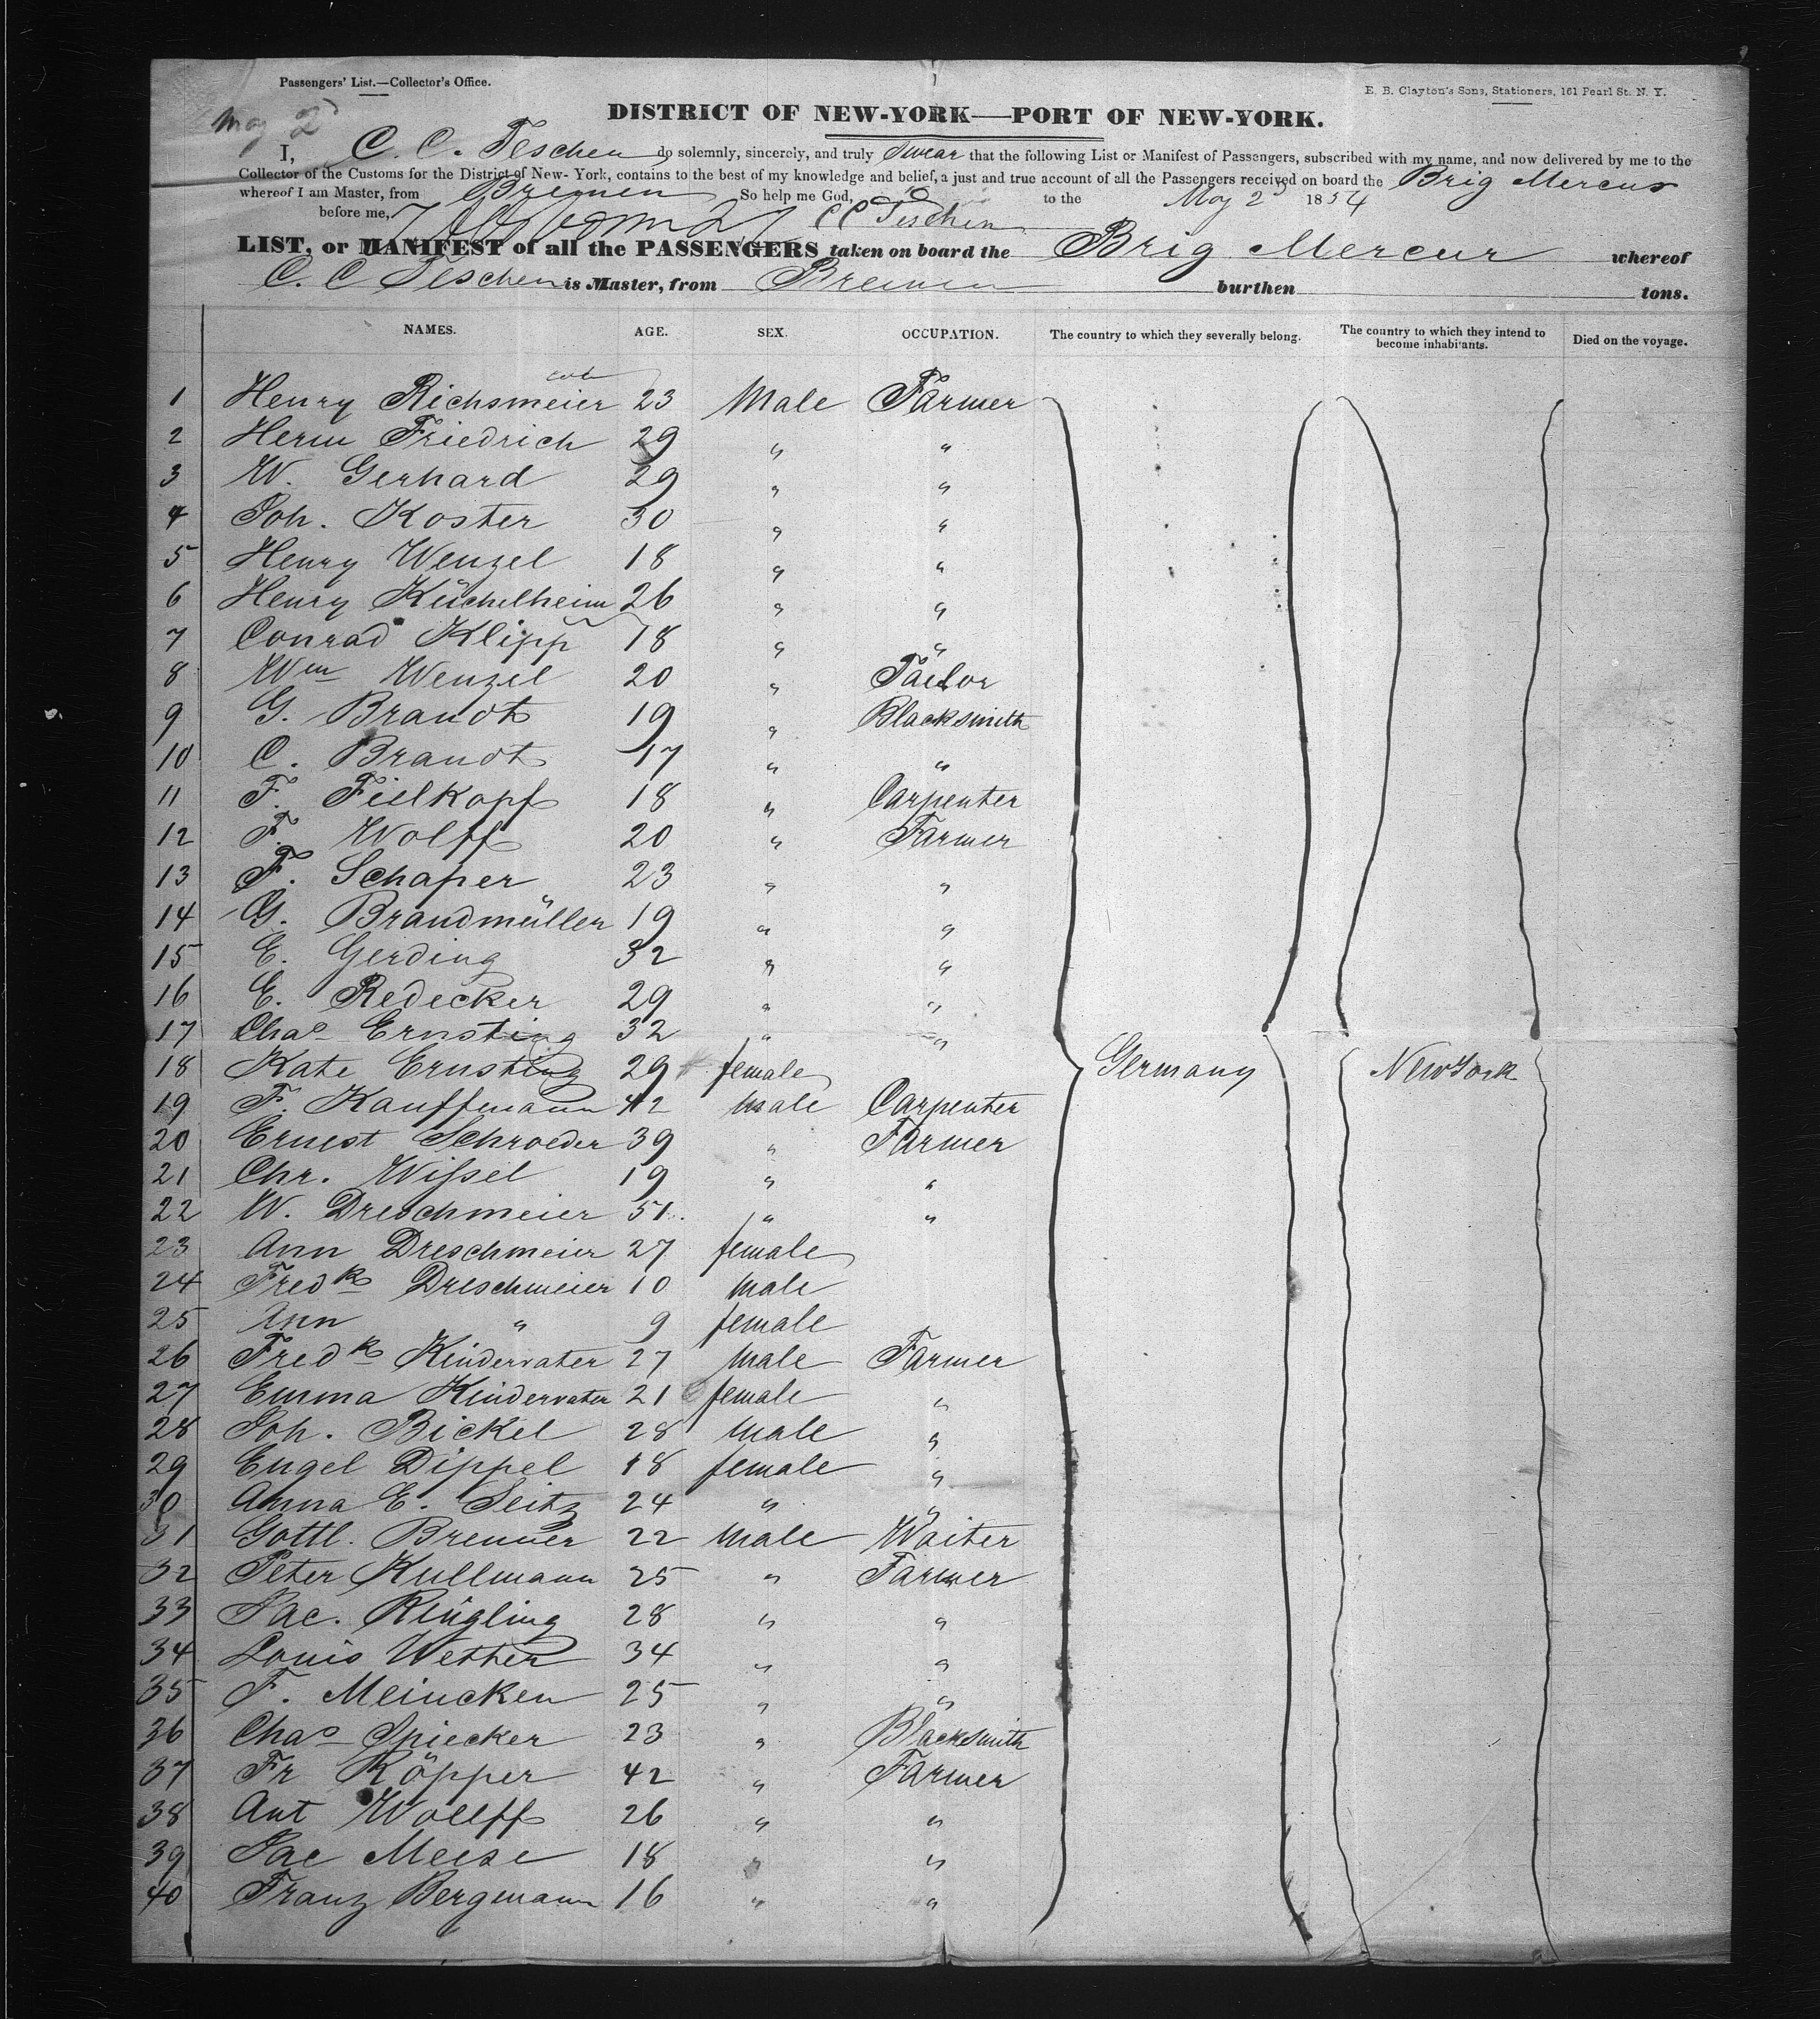 Passengers' List.—Collector's Office.
E. B. Clayton's Sons, Stationers, 161 Pearl St. N. Y.
May 2d
DISTRICT OF NEW-YORK—PORT OF NEW-YORK.
I, C. C. Teschen do solemnly, sincerely, and truly Swear that the following List or Manifest of Passengers, subscribed with my name, and now delivered by me to the
Collector of the Customs for the District of New-York, contains to the best of my knowledge and belief, a just and true account of all the Passengers received on board the Brig Mercur
whereof I am Master, from Bremen So help me God, to the May 2d 1854
before me, C C Teschen
LIST, or MANIFEST of all the PASSENGERS taken on board the Brig Mercur whereof
C. C Teschen is Master, from Bremen burthen tons.
NAMES. AGE. SEX. OCCUPATION. The country to which they severally belong. The country to which they intend to become inhabitants. Died on the voyage.
1 Henry Richsmeier 23 Male Farmer
2 Herm Friedrich 29 " "
3 W. Gerhard 29 " "
4 Joh. Koster 30 " "
5 Henry Wenzel 18 " "
6 Henry Küchelheim 26 " "
7 Conrad Klipp 18 " "
8 Wm Wenzel 20 " Tailor
9 G. Brandt 19 " Blacksmith
10 C. Brandt 17 " "
11 F. Fielkopf 18 " Carpenter
12 F. Wolff 20 " Farmer
13 F. Schaper 23 " "
14 G. Brandmüller 19 " "
15 E. Gerding 32 " "
16 E. Redecker 29 " "
17 Chas Ernsting 32 " "
18 Kate Ernsting 29 female Germany New York
19 F. Kauffmann 42 Male Carpenter
20 Ernest Schroeder 39 " Farmer
21 Chr. Wifsel 19 " "
22 W. Dreschmeier 51. " "
23 Ann Dreschmeier 27 female
24 Fredk Dreschmeier 10 Male
25 Ann " 9 female
26 Fredk Kindervater 27 Male Farmer
27 Emma Kindervater 21 female "
28 Joh. Bickel 28 Male "
29 Engel Dippel 18 female "
30 Anna E. Seitz 24 " "
31 Gottl. Brenner 22 Male Waiter
32 Peter Kullmann 25 " Farmer
33 Jac. Ringling 28 " "
34 Louis Wether 34 " "
35 F. Meincken 25 " "
36 Chas Spiecker 23 " Blacksmith
37 Fr Köpper 42 " Farmer
38 Ant Wollff 26 " "
39 Jac Meese 18 " "
40 Franz Bergmann 16 " "